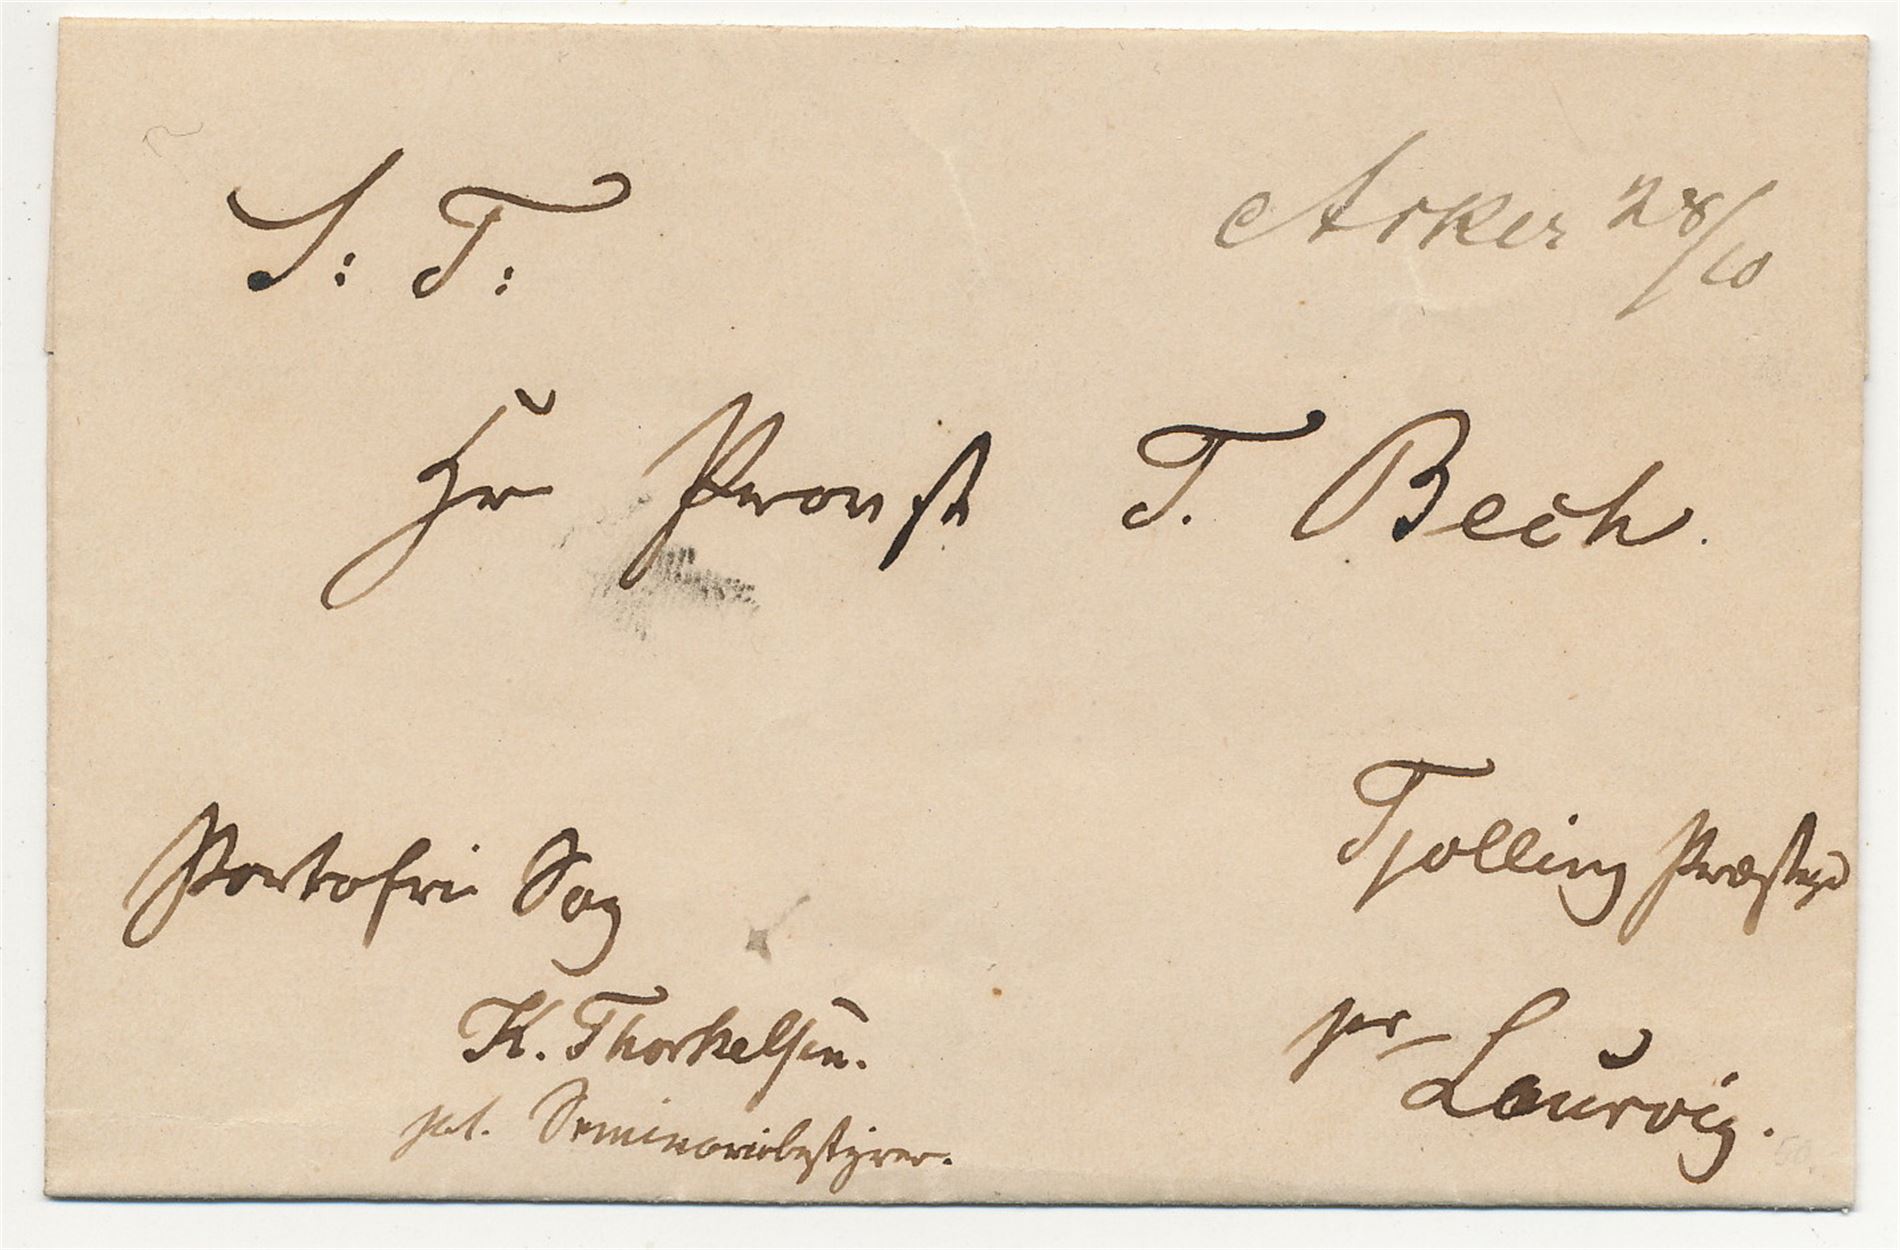 S: T:
Asker 28/10
Hr Provst T. Bech.
Tjølling Præstegd
Portofri Sag
pr Laurvig.
K. Thorkelsen.
pt. Seminariebestyrer.